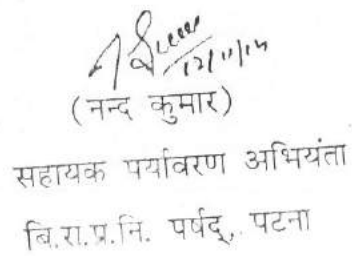 12/11/14
(नन्द कुमार)
सहायक पर्यावरण अभियंता
बि.रा.प्र.नि. पर्षद्, पटना